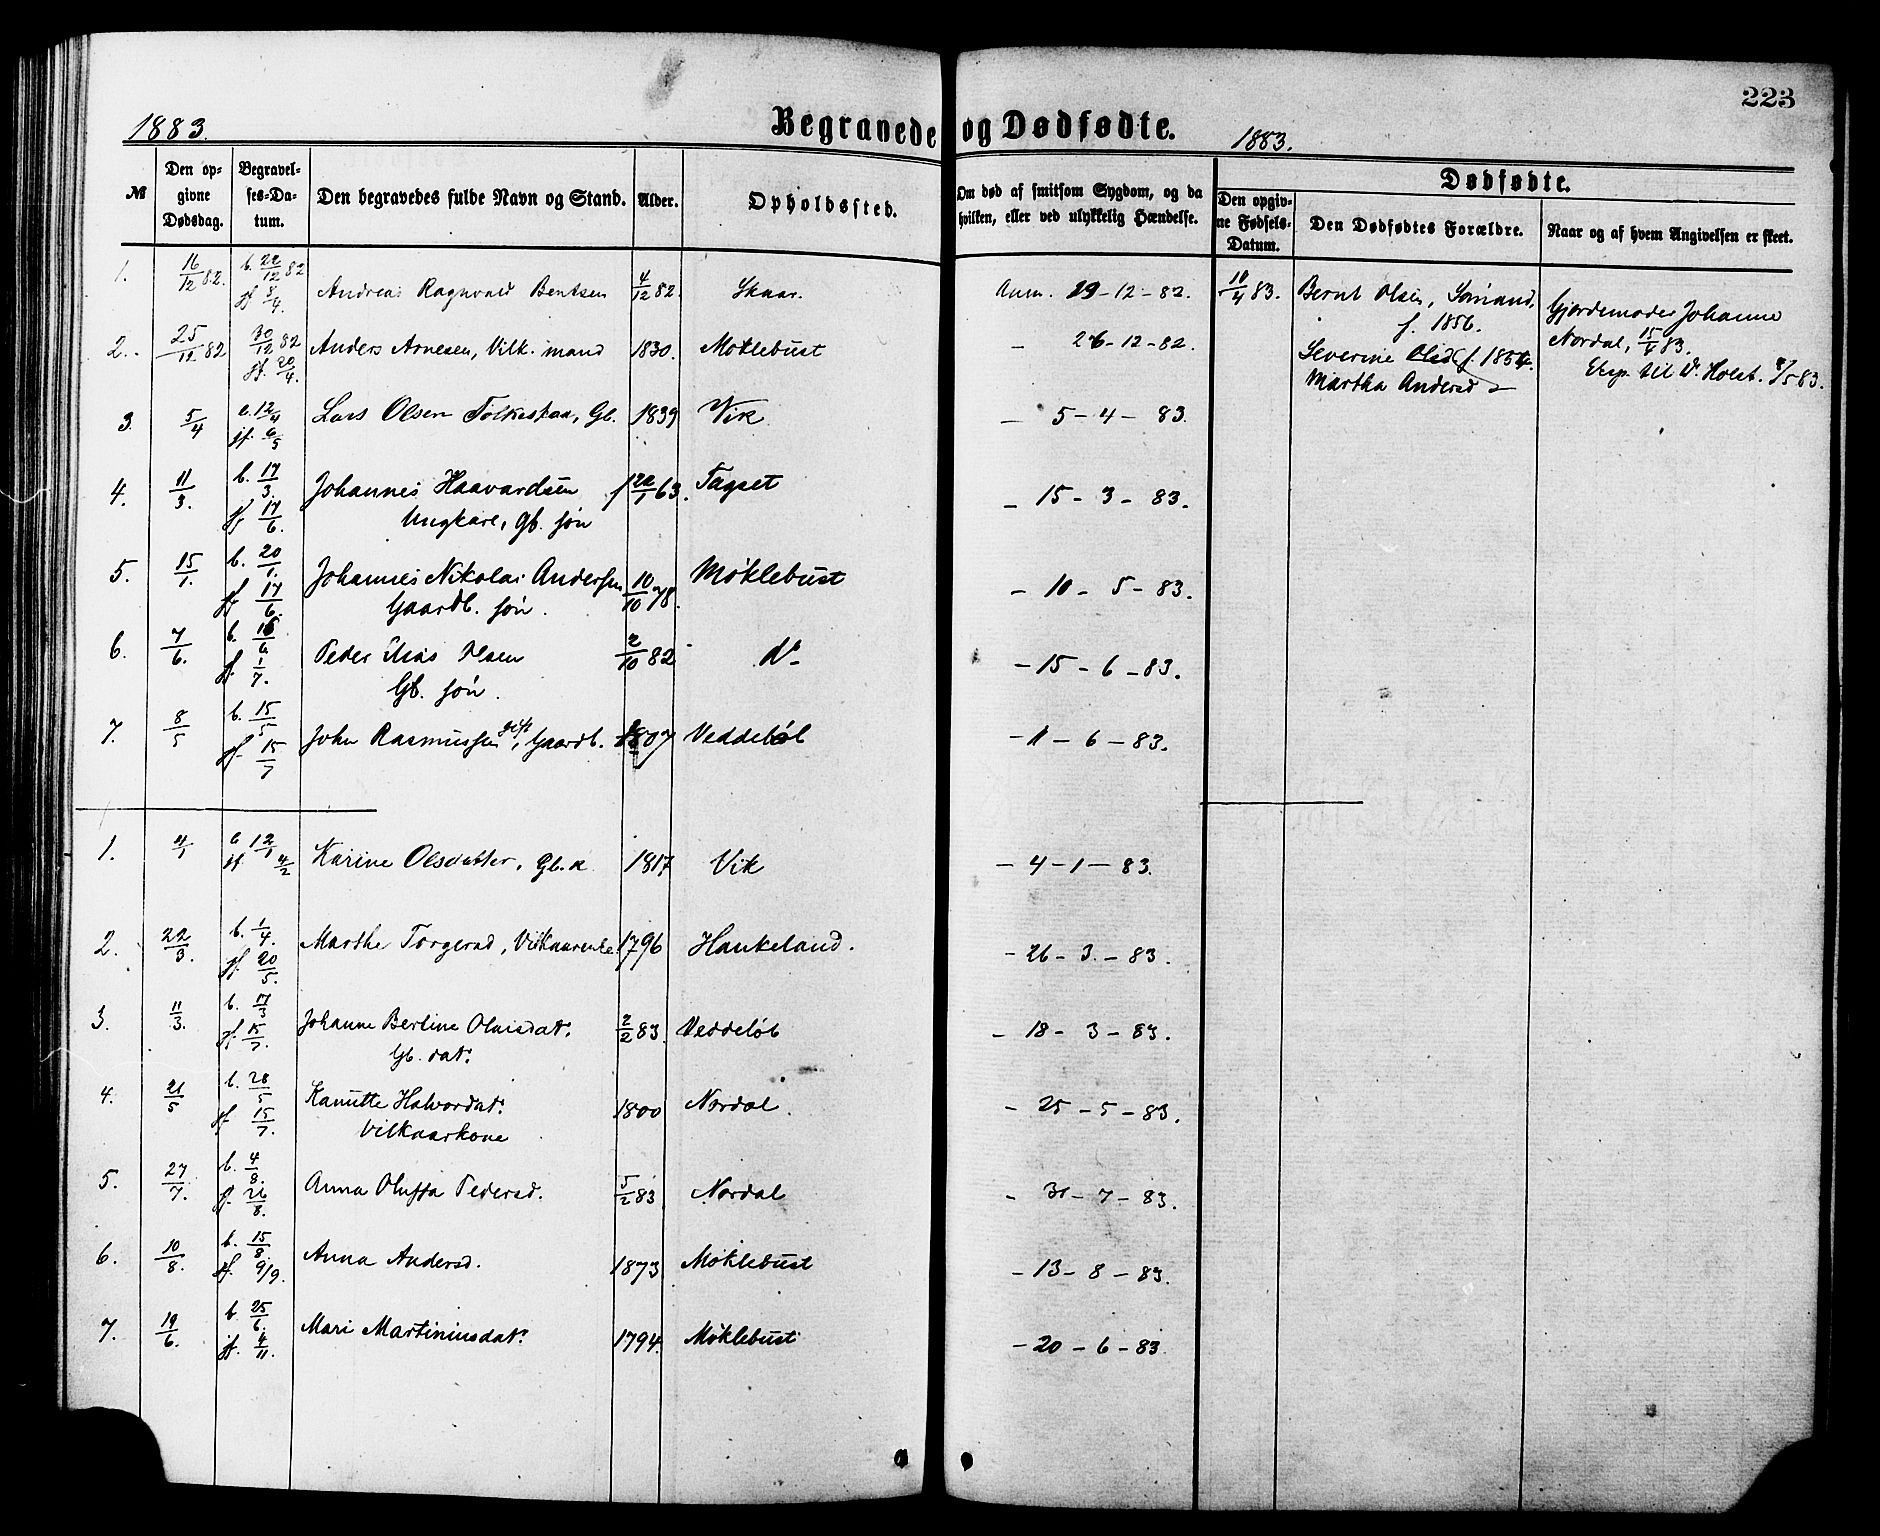 223
1883.
Begravede og Dødfødte.
1883.
№
Den opgivne Dødsdag.
Begravelses-Datum.
Den begravedes fulde Navn og Stand.
Alder.
Opholdssted.
Om død af smitsom Sygdom, og da hvilken, eller ved ulykkelig Hændelse.
Dødfødte.
Den opgivne Fødsels-Datum.
Den Dødfødtes Forældre.
Naar og af hvem Angivelsen er skeet.
1. 16/12 82. b. 22/12 82 jf. 8/4. Andreas Ragnvald Bentsen 4/12 82. Skaar. Anm. 29-12-82. 10/4 83. Bernt Olsen, Sømand, f. 1856.
Severine Olsd. f. 1854.
Martha Andersd
Gjordemoder Johanne
Nordal, 15/4 83.
Exp. til D. Holst. 8/5 83.
2. 25/12 82 30/12 82 jf. 20/4. Anders Arnesen, Vilk. mand 1830. Møklebust – 26-12-82.
3. 5/4 b. 12/4 jf. 6/5 Lars Olsen Gb. 1839 Vik – 5-4-83.
4. 11/3. b. 17/3. jf. 17/6. Johannes Haavardsen f 63. Tagset – 15-3-83.
Ungkarl, Gb. søn
5. 15/1. b. 20/1. jf. 17/6. Johannes Nikolai Anderssen 10/10 78. Møklebust – 10-5-83.
Gaardb. søn.
6. 7/6. b. 16/6 jf. 1/7. Peder Elias Olsen 2/10 82 do – 15-6-83.
Gb. søn.
7. 8/5 b. 15/5 jf. 15/7 John Rasmussen gift, Gaardb. 1807 Veddeløb – 1-6-83.
1. 4/1 b 12/1 jf. 4/2 Karine Olsdatter, Gb. k 1817 Vik – 4-1-83.
2. 22/3. b. 1/4. jf. 20/5. Marthe Torgersd, Vilkaarenke 1796 Haukeland. – 26-3-83.
3. 11/3. b. 17/3 jf. 15/7. Johanne Berline Olaisdat. 2/2 83. Veddeløb – 18-3-83.
Gb. dat.
4. 21/5 b. 28/5 jf. 15/7. Kanutte Halvordat. 1800 Nordal. – 25-5-83.
Vilkaarkone
5. 27/7. b. 4/8. jf. 26/8. Anna Oluffa Pedersd. 5/2 83 Nordal – 30-7-83.
6. 10/8. b. 15/8. jf. 9/9. Anna Andersd. 1873 Møklebust – 13-8-83.
7. 19/6. b. 25/6. jf. 4/11. Mari Martiniusdat. 1794. Møklebust – 20-6-83.